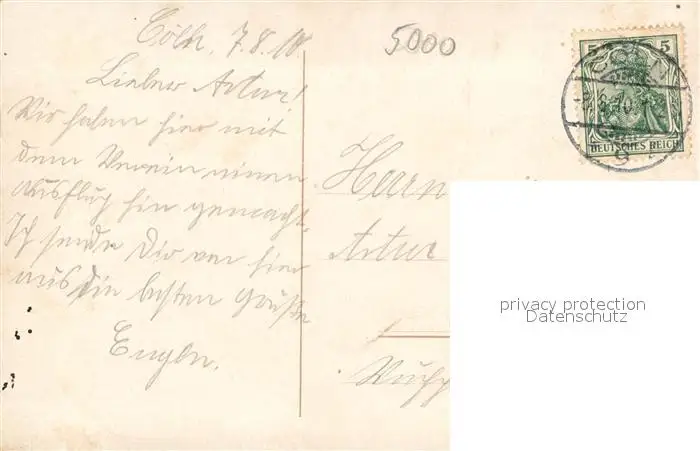 Cöln, 7.8.10
5000
Lieber Artur!
Wir haben hier mit
dem Verein einen
Ausflug hin gemacht.
Ich sende Dir von hier
aus die besten Grüße
Herrn
Artur
5 5
DEUTSCHES REICH
privacy protection
Datenschutz